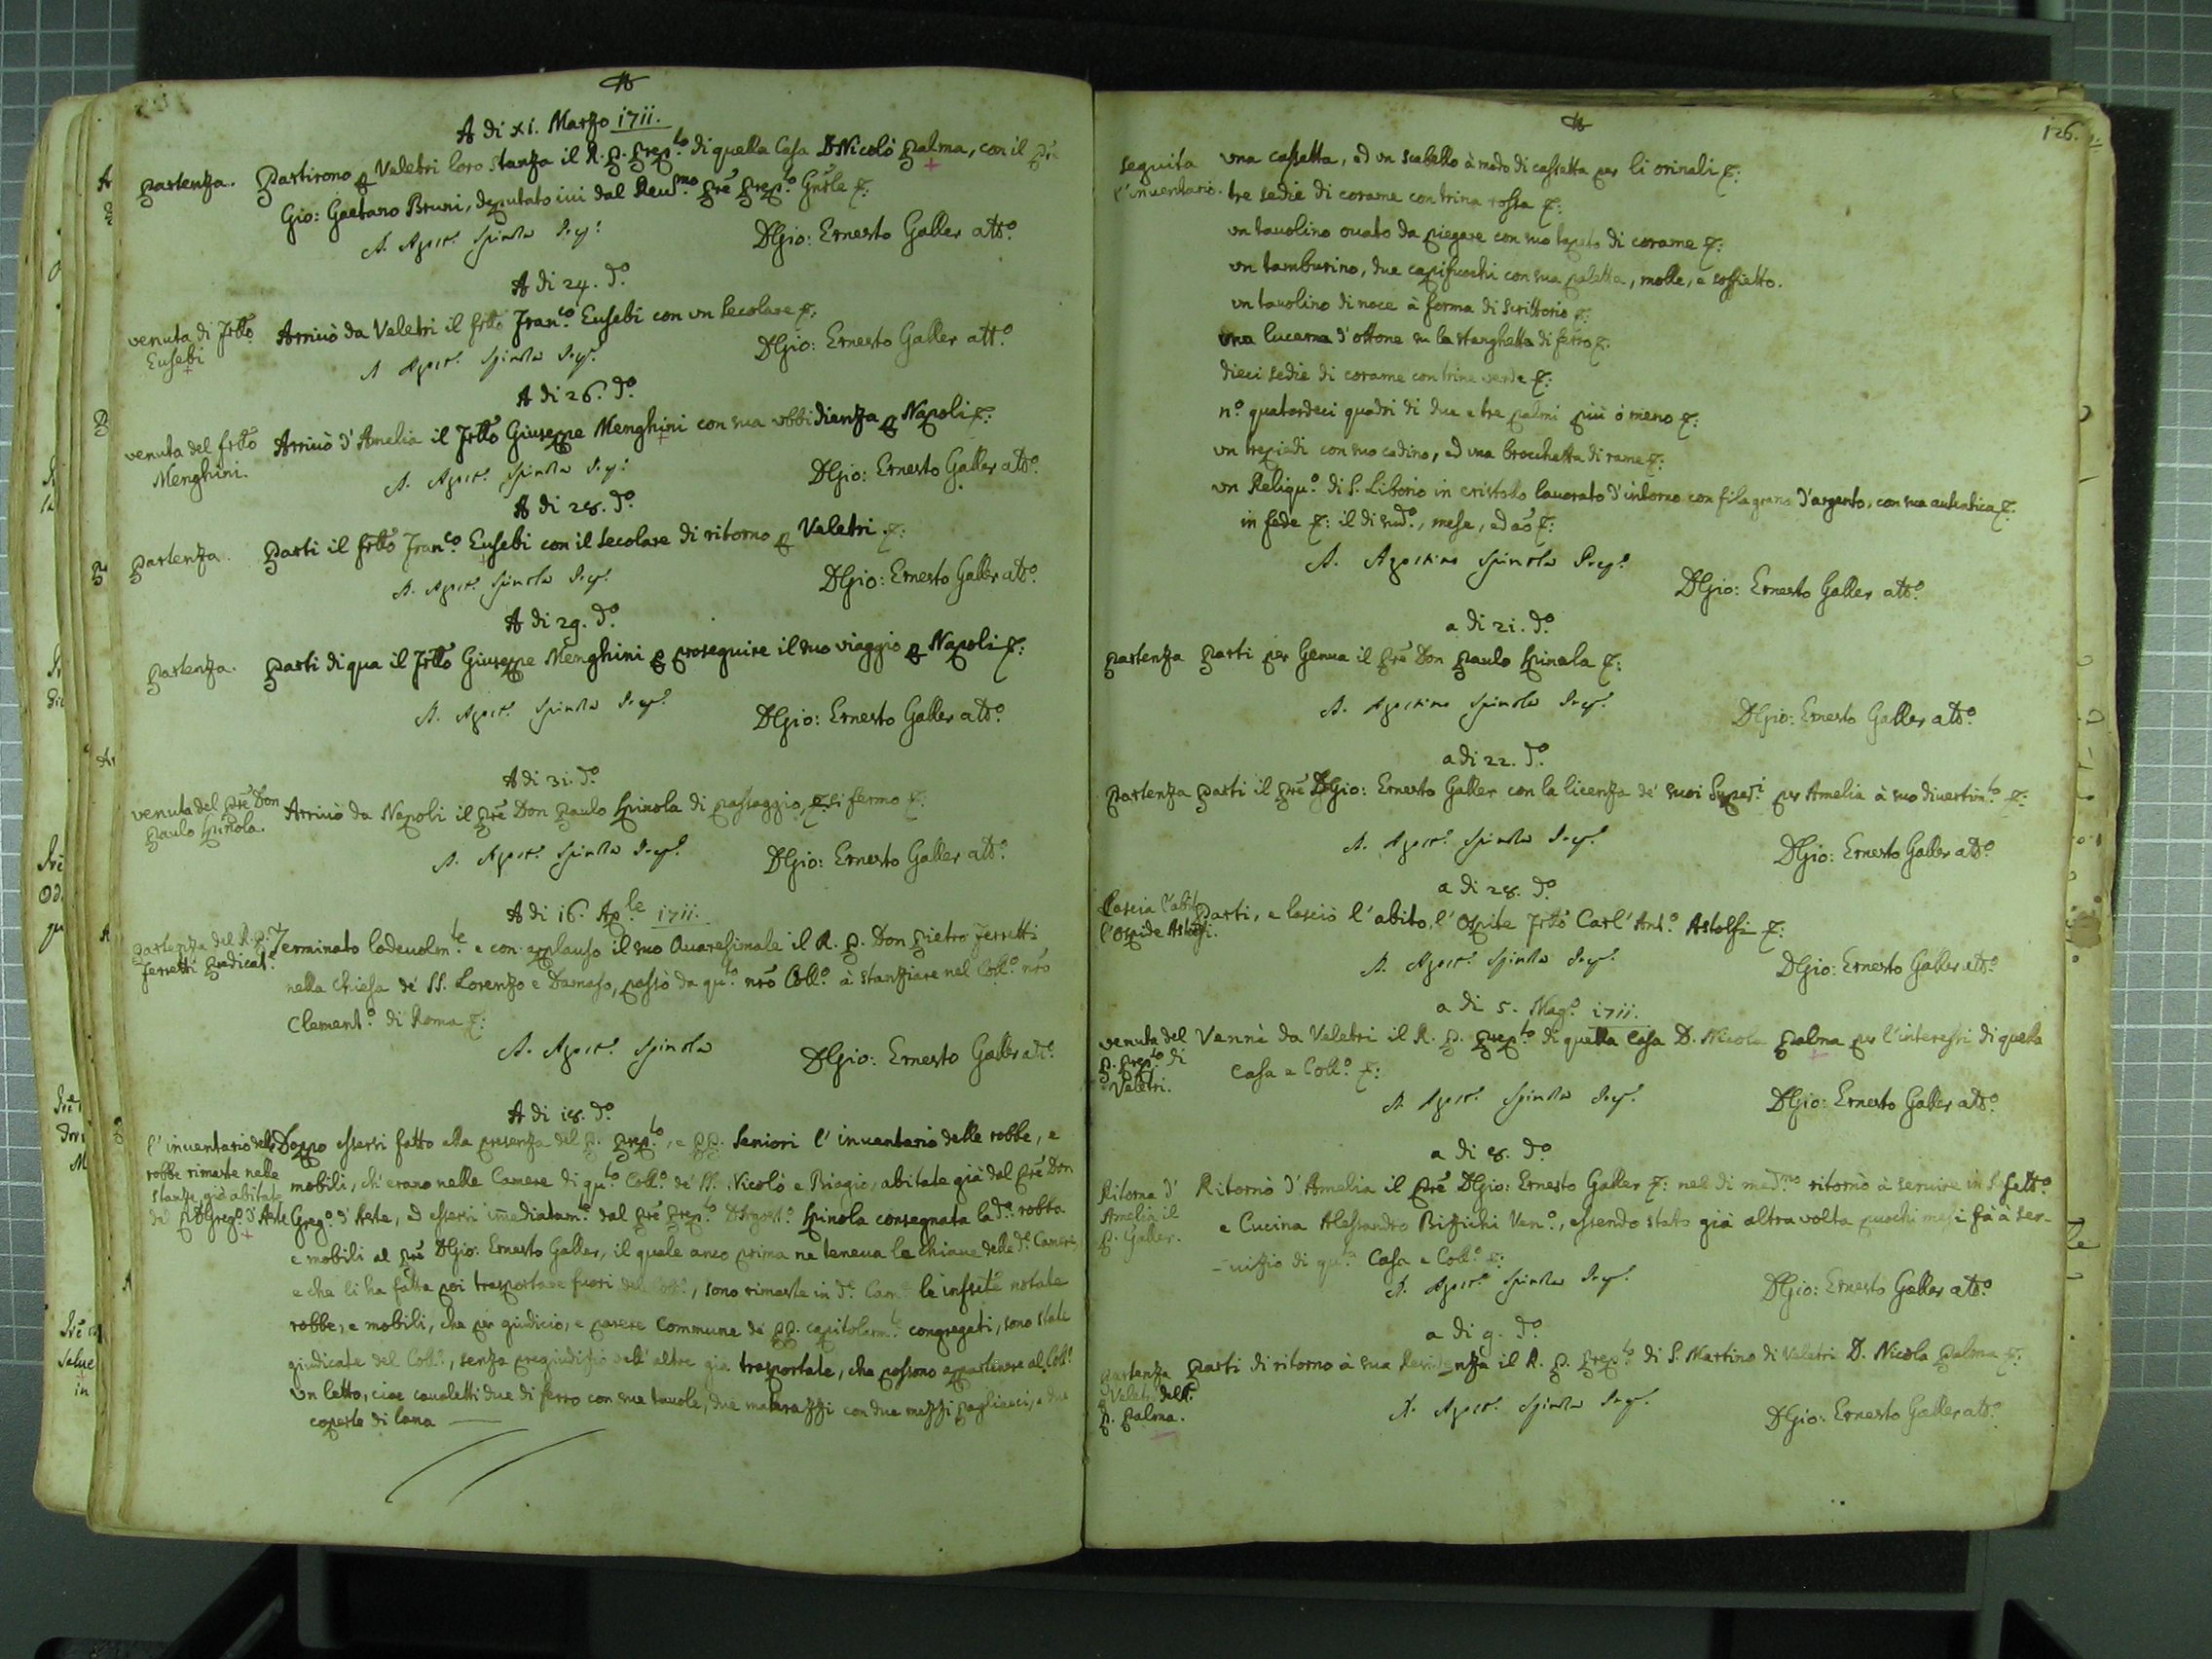 A di XI. Marzo 1711.
Partenza. Partirono p Veletri loro stanza il R. P. Prep.to di quella Casa D Nicolò Palma, con il
Gio: Gaetano Bruni, deputato iui dal Reu.mo Prē Prep.to Gnrle &:
A. Agost.o Spinola Prep.o D Gio: Ernesto Galler att.o
A di 24. d.o
venuta di Frtto Eusebi
Arriuò da Veletri il frtto Fran.co Eusebi con vn secolare &:
A Agost.o Spinola Prep.o D Gio: Ernesto Galler att.o
A di 26. d.o
venuta del frtto Menghini.
Arriuò d'Amelia il Frtto Giuseppe Menghini con sua vbbidienza p Napoli &:
A. Agost.o Spinola Prep.o D Gio: Ernesto Galler att.o
A di 28. d.o
Partenza. Parti il frtto Fran.co Eusebi con il secolare di ritorno p Veletri &:
A. Agost.o Spinola Prep.o D Gio: Ernesto Galler att.o
A di 29. d.o
Partenza. Parti di qua il Frtto Giuseppe Menghini p proseguire il suo viaggio p Napoli &:
A. Agost.o Spinola Prep.o D Gio: Ernesto Galler att.o
A di 31. d.o
venuta del Prē Don Paulo Spinola.
Arriuò da Napoli il Prē Don Paulo Spinola di passaggio, e si fermo &:
A. Agost.o Spinola Prep.o D Gio: Ernesto Galler att.o
A di 16. Ap.le 1711.
Partenza del R. P. Ferretti Predicat.e
Terminato lodeuolm.te e con applauso il suo Quaresimale il R. P. Don Pietro Ferretti
nella Chiesa de' SS. Lorenzo e Damaso, passò da qu.to nrō Coll.o à stanziare nel Coll.o nrō
Clement.o di Roma &:
A. Agost.o Spinola D Gio: Ernesto Galler att.o
A di 18. d.o
l'inventario delle robbe rimaste nelle stanze già abitate dal P D Greg.o d'Aste
Doppo essersi fatto alla presenza del P. Prep.to, e PP. Seniori l'inuentario delle robbe, e
mobili, ch'erano nelle Camere di qu.to Coll.o de' SS. Nicolò e Biagio, abitate già dal Prē Don
Greg.o d'Aste, ed essersi imediatam.te dal Prē Prep.to D Agost.o Spinola consegnata la d.a robba
e mobili al Prē D Gio: Ernesto Galler, il quale anco prima ne teneua le chiaue delle d.e Camere,
e che li ha fatta poi trasportare fuori del Coll.o, sono rimaste in d.e Cam.e le infrte notate
robbe, e mobili, che per giudicio, e parere Commune de' PP. capitolarm.te congregati, sono state
giudicate del Coll.o, senza pregiudizio dell'altre già trasportate, che possono appartenere al Coll.o
vn letto, cioe caualetti due di ferro con sue tauole, due matarazzi con due mezzi pagliacci, e due
coperte di lana
126.
seguita l'inuentario.
vna cassetta, ed vn scabello à modo di cassetta per li orinali &:
tre sedie di corame con trina rossa &:
vn tauolino ouato da piegare con suo tapeto di corame &:
vn tamburino, due capifuochi con sua paletta, molle, e soffietto.
vn tauolino di noce à forma di scrittorio &:
vna lucerna d'ottone su la stanghetta di ferro &:
dieci sedie di corame con trine verde &:
n.o quatordeci quadri di due e tre palmi più ò meno &:
vn trepiedi con suo cadino, ed vna brocchetta di rame &:
vn Reliqu.o di S. Liborio in cristallo lauorato d'intorno con filagrana d'argento, con sua autentica &:
in fede &: il di sud.o, mese, ed aō &:
A. Agostino Spinola Prep.o
D Gio: Ernesto Galler att.o
a di 21. d.o
Partenza Parti per Genua il Prē Don Paulo Spinola &:
A. Agostino Spinola Prep.o D Gio: Ernesto Galler att.o
a di 22. d.o
Partenza Parti il Prē D Gio: Ernesto Galler con la licenza de' suoi Super.i per Amelia à suo diuertim.to &:
A. Agost.o Spinola Prep.o D Gio: Ernesto Galler att.o
a di 28. d.o
Lascia l'abito l'Ospide Astolfi.
Parti, e lasciò l'abito, l'Ospite Frtto Carl'Ant.o Astolfi &:
A. Agost.o Spinola Prep.o D Gio: Ernesto Galler att.o
a di 5. Mag.o 1711.
venuta del P. Prep.to di Veletri.
Vennè da Veletri il R. P. Prep.to di quella Casa D. Nicola Palma per l'interessi di quella
Casa e Coll.o &:
A Agost.o Spinola Prep.o D Gio: Ernesto Galler att.o
a di 8. d.o
Ritorna d'Amelia il P. Galler.
Ritornò d'Amelia il Prē D Gio: Ernesto Galler &: nel di med.mo ritornò à seruire in
e Cucina Alessandro Bizzichi Ven.o, essendo stato già altra volta puochi mesi fà à ser-
-uizio di qu.ta Casa e Coll.o &:
A. Agost.o Spinola Prep.o D Gio: Ernesto Galler att.o
a di 9. d.o
Partenza p Veletri del R. P. Palma.
Parti di ritorno à sua Residenza il R. P. Prep.to di S. Martino di Veletri D. Nicola Palma &:
A. Agost.o Spinola Prep.o D Gio: Ernesto Galler att.o